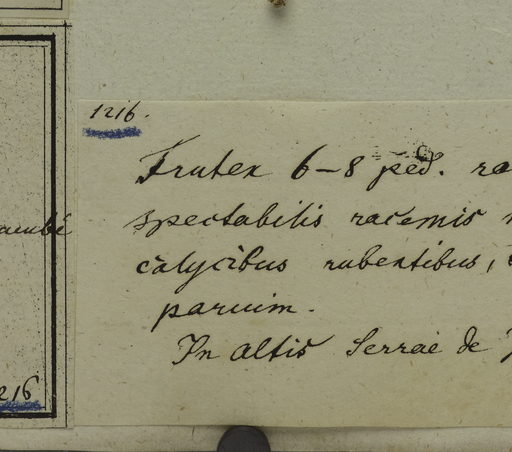 1216.
Frutex 6-8 ped. ra
spectabilis racemis
calycibus rubentibus,
parvim.
In altis Serrae de
216